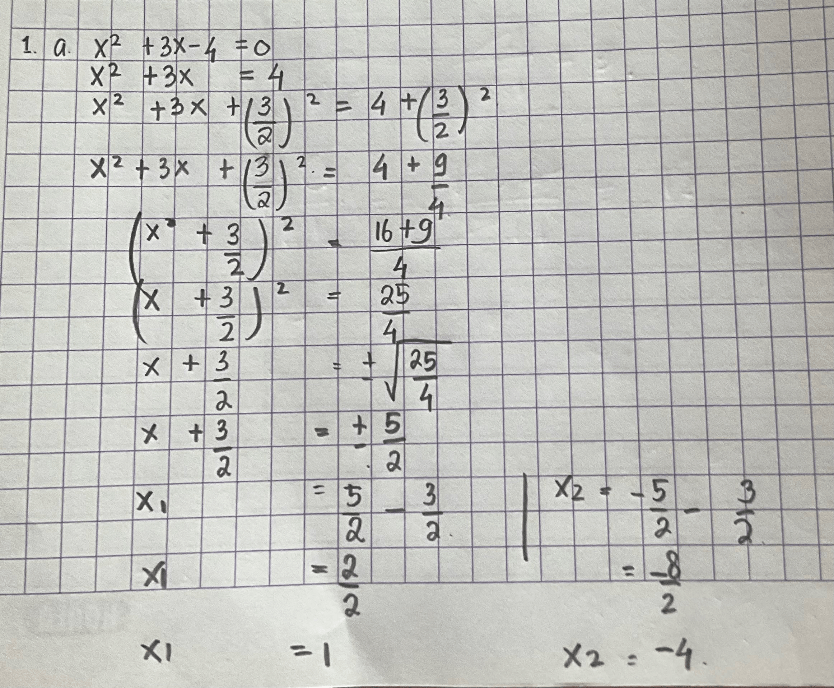 1. a. x² + 3x - 4 = 0
x² + 3x = 4
x² + 3x + (3/2)² = 4 + (3/2)²
x² + 3x + (3/2)² = 4 + 9/4
(x² + 3/2)² = (16 + 9)/4
(x + 3/2)² = 25/4
x + 3/2 = ± √(25/4)
x + 3/2 = ± 5/2
x₁ = 5/2 - 3/2 | x₂ = -5/2 - 3/2
x₁ = 2/2 = -8/2
x₁ = 1 x₂ = -4.